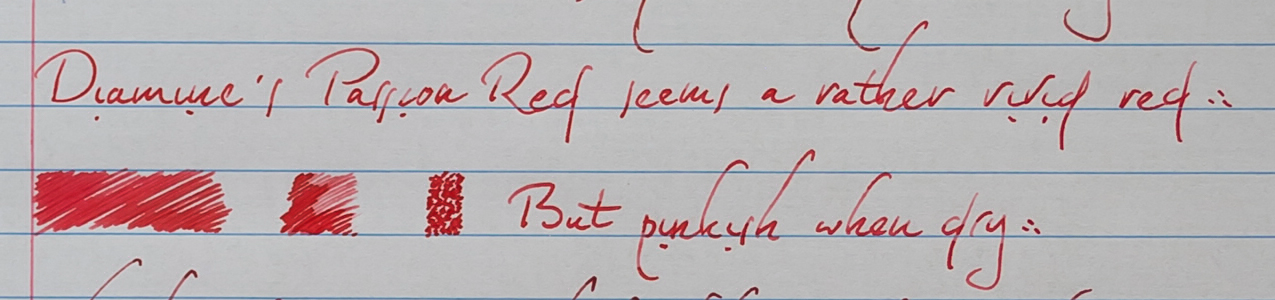 Diamine's Passion Red seems a rather vivid red ∴
But pinkish when dry ∴